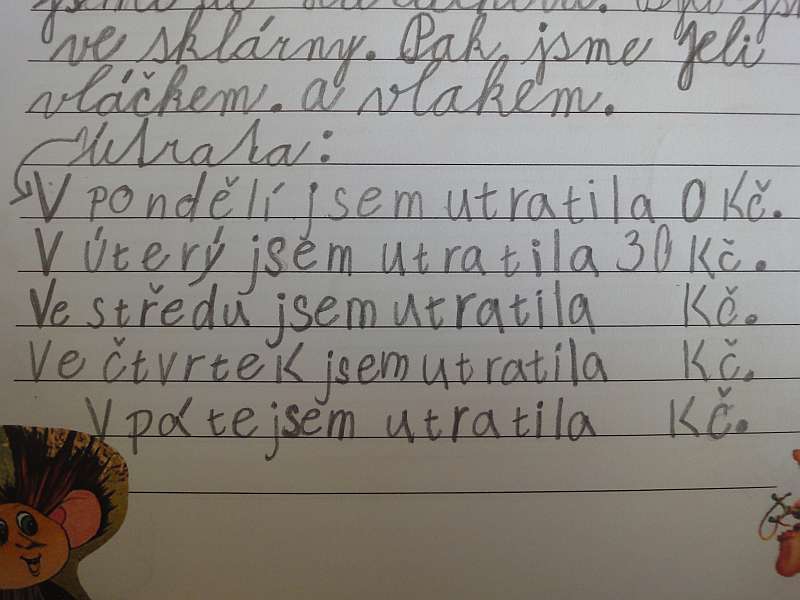 ve sklárny. Pak jsme jeli
vláčkem. a vlakem.
Útrata:
V pondělí jsem utratila 0 Kč.
V Úterý jsem utratila 30 Kč.
Ve středu jsem utratila Kč.
Ve čtvrtek jsem utratila Kč.
V páte jsem utratila Kč.